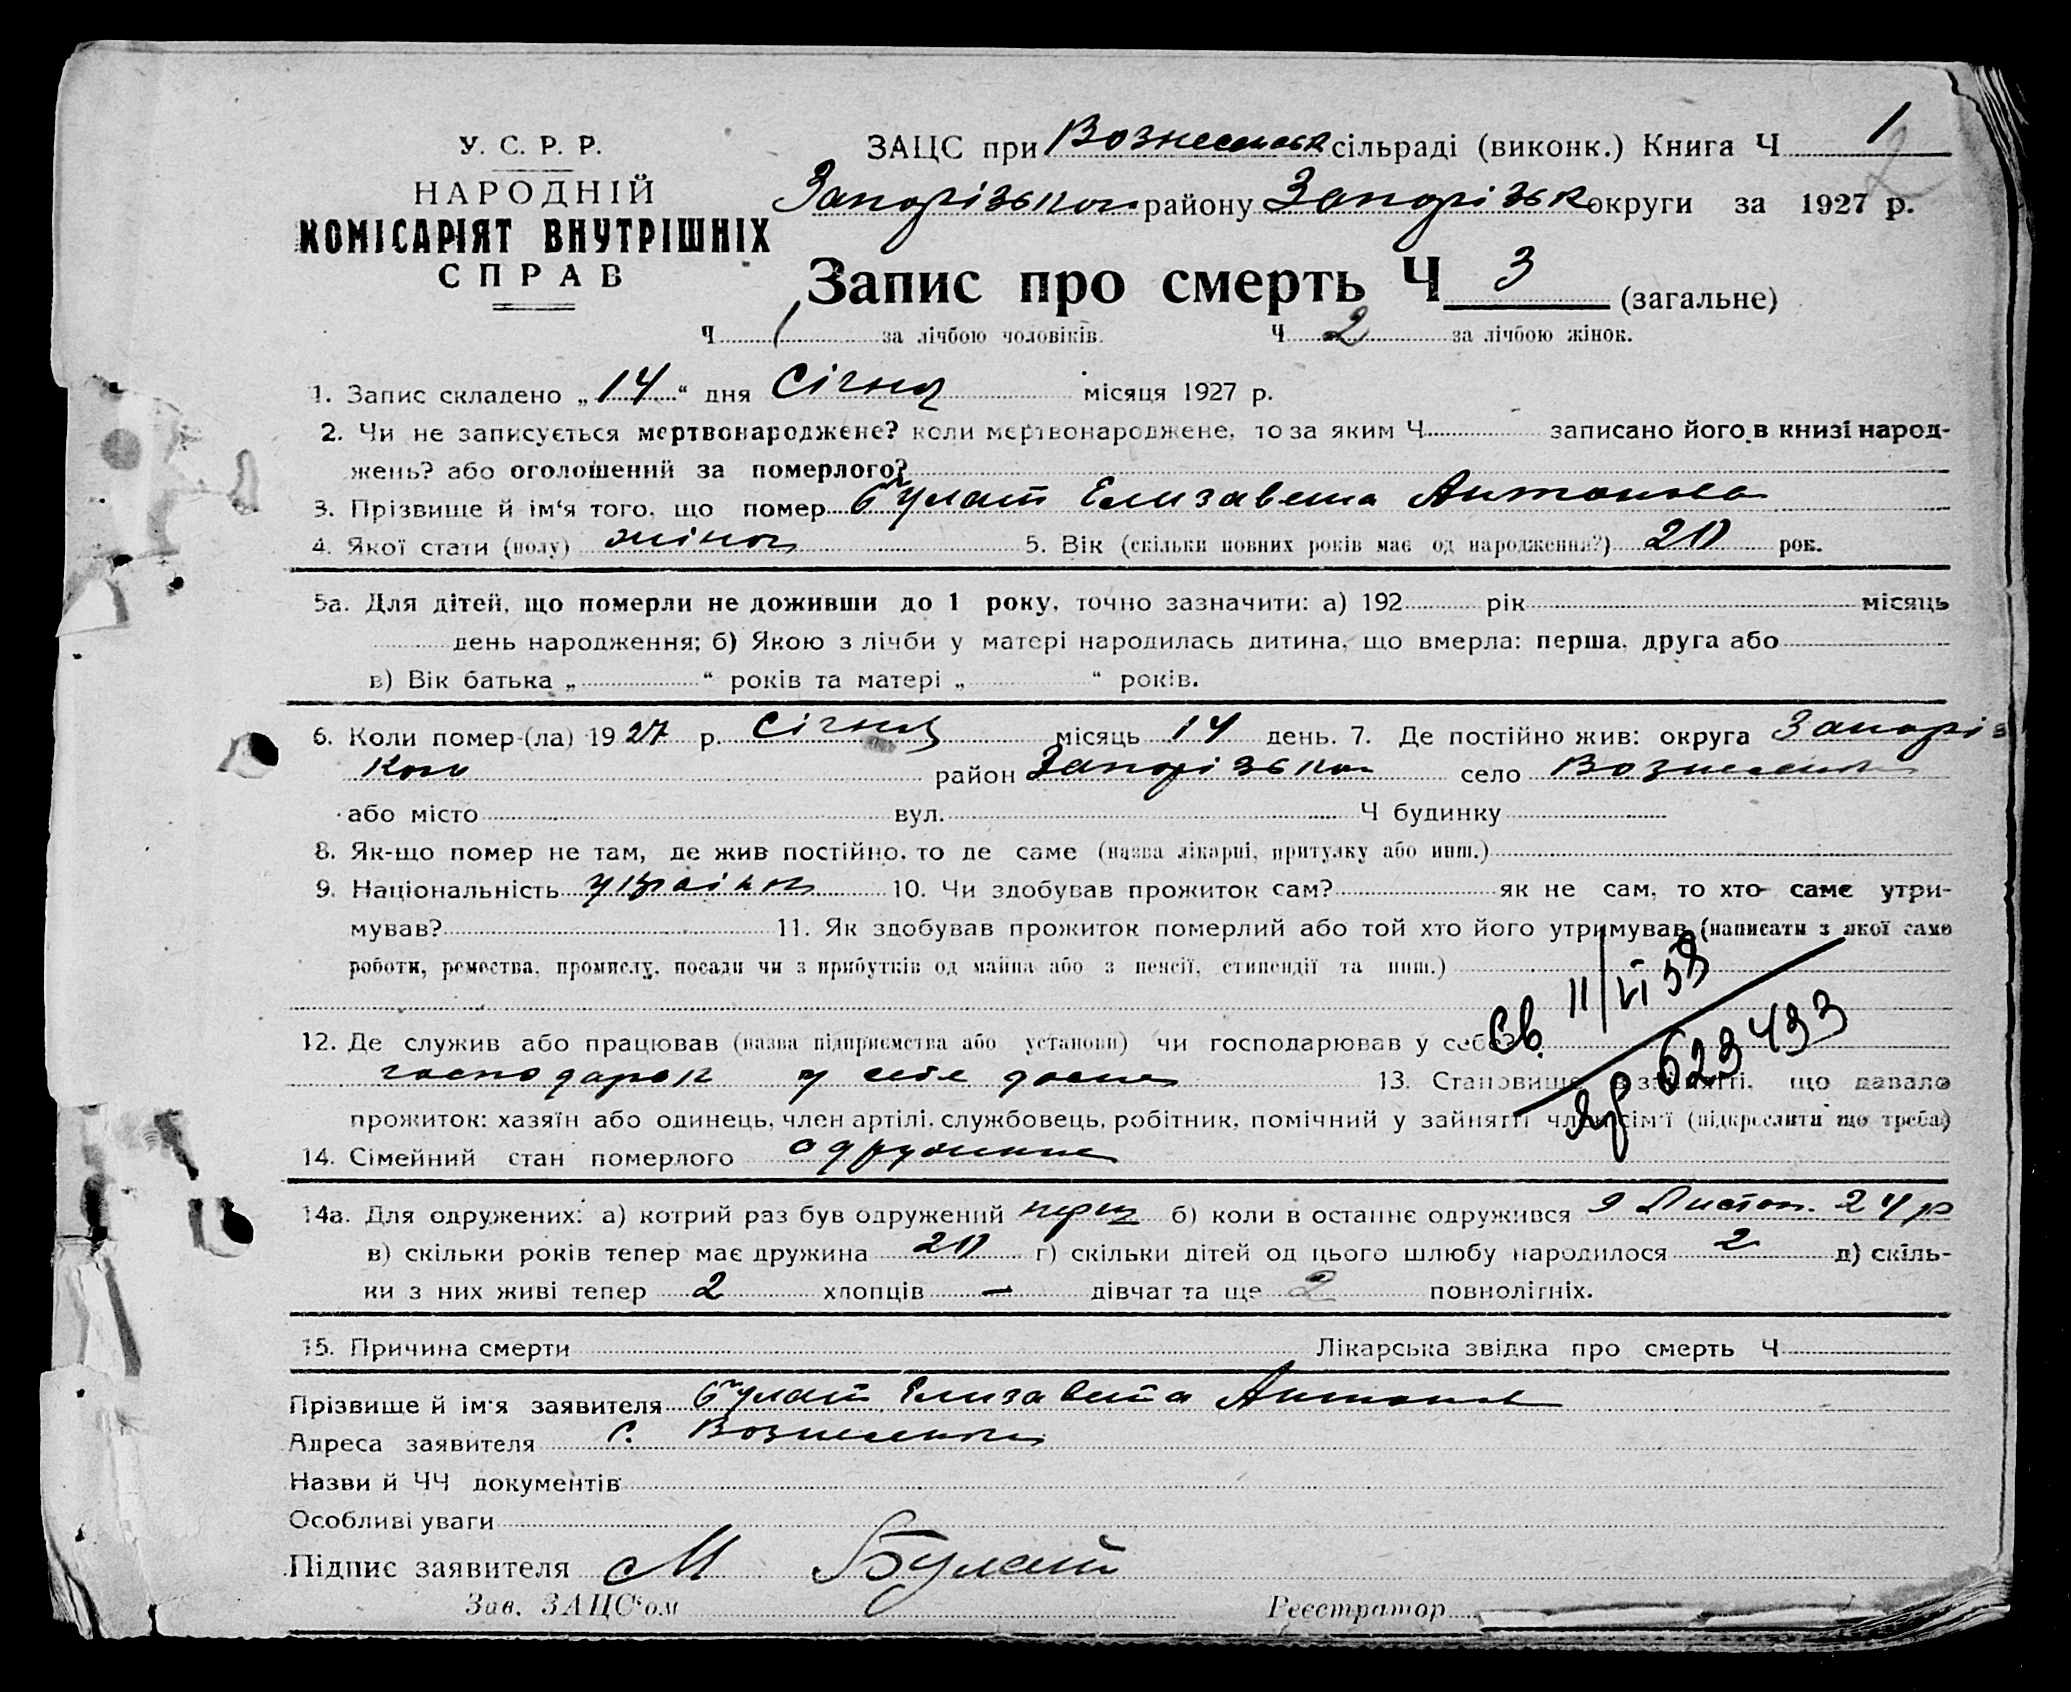 У. С. Р. Р.
НАРОДНІЙ
КОМІСАРІЯТ ВНУТРІШНІХ
СПРАВ
ЗАЦС при Вознесенськ сільраді (виконк.) Книга Ч 1
2
Запорізьког району Запорізьк округи за 1927 р.
Запис про смерть Ч 3 (загальне)
Ч 1 за лічбою чоловіків. Ч 2 за лічбою жінок.
1. Запис складено „ 14 “ дня Січня місяця 1927 р.
2. Чи не записується мертвонароджене? коли мертвонароджене, то за яким Ч записано його в книзі народ-
жень? або оголошений за померлого?
3. Прізвище й ім‘я того, що помер Булат Елизавета Антонова
4. Якої стати (полу) жіноч 5. Вік (скільки повних років має од народження?) 20 рок.
5а. Для дітей, що померли не доживши до 1 року, точно зазначити: а) 192 рік місяць
день народження; б) Якою з лічби у матері народилась дитина, що вмерла: перша, друга або
в) Вік батька „ “ років та матері „ “ років.
6. Коли помер-(ла) 1927 р. Січня місяць 14 день. 7. Де постійно жив: округа Запоріз
ког район Запорізьког село Вознесенка
або місто вул. Ч будинку
8. Як-що помер не там, де жив постійно, то де саме (назва лікарні, притулку або инш.)
9. Національність україн 10. Чи здобував прожиток сам? як не сам, то хто саме утри-
мував? 11. Як здобував прожиток померлий або той хто його утримував (написати з якої саме
роботи, ремества, промислу, посади чи з прибутків од майна або з пенсії, стипендії та инш.)
Св. 11/VI 58
12. Де служив або працював (назва підприємства або установи) чи господарював у себе
ЯР 623433
господарюв у себе дома 13. Становище в занятті, що давало
прожиток: хазяїн або одинець, член артілі, службовець, робітник, помічний у зайнятті член сім‘ї (підкреслити що треба)
14. Сімейний стан померлого одружена
14а. Для одружених: а) котрий раз був одружений перш б) коли в останнє одружився 9 Листоп. 24 р
в) скільки років тепер має дружина 20 г) скільки дітей од цього шлюбу народилося 2 д) скіль-
ки з них живі тепер 2 хлопців — дівчат та ще 2 повнолітніх.
15. Причина смерти Лікарська звідка про смерть Ч
Прізвище й ім‘я заявителя Булат Елизавета Антонов
Адреса заявителя с. Вознесенка
Назви й ЧЧ документів
Особливі уваги
Підпис заявителя М Булат
Зав. ЗАЦС‘ом Реєстратор